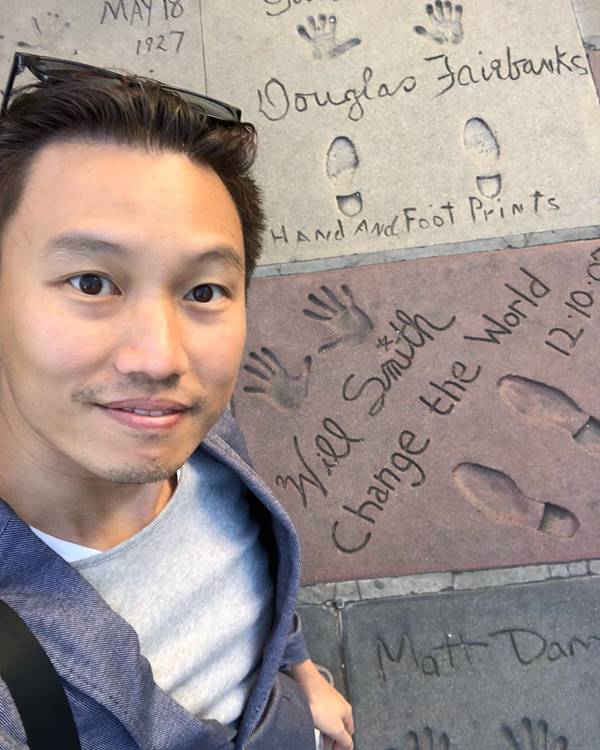 MAY 18
1927
Douglas Fairbanks
HAND AND FOOT PRINTS
Will Smith
Change the World
Matt Dam